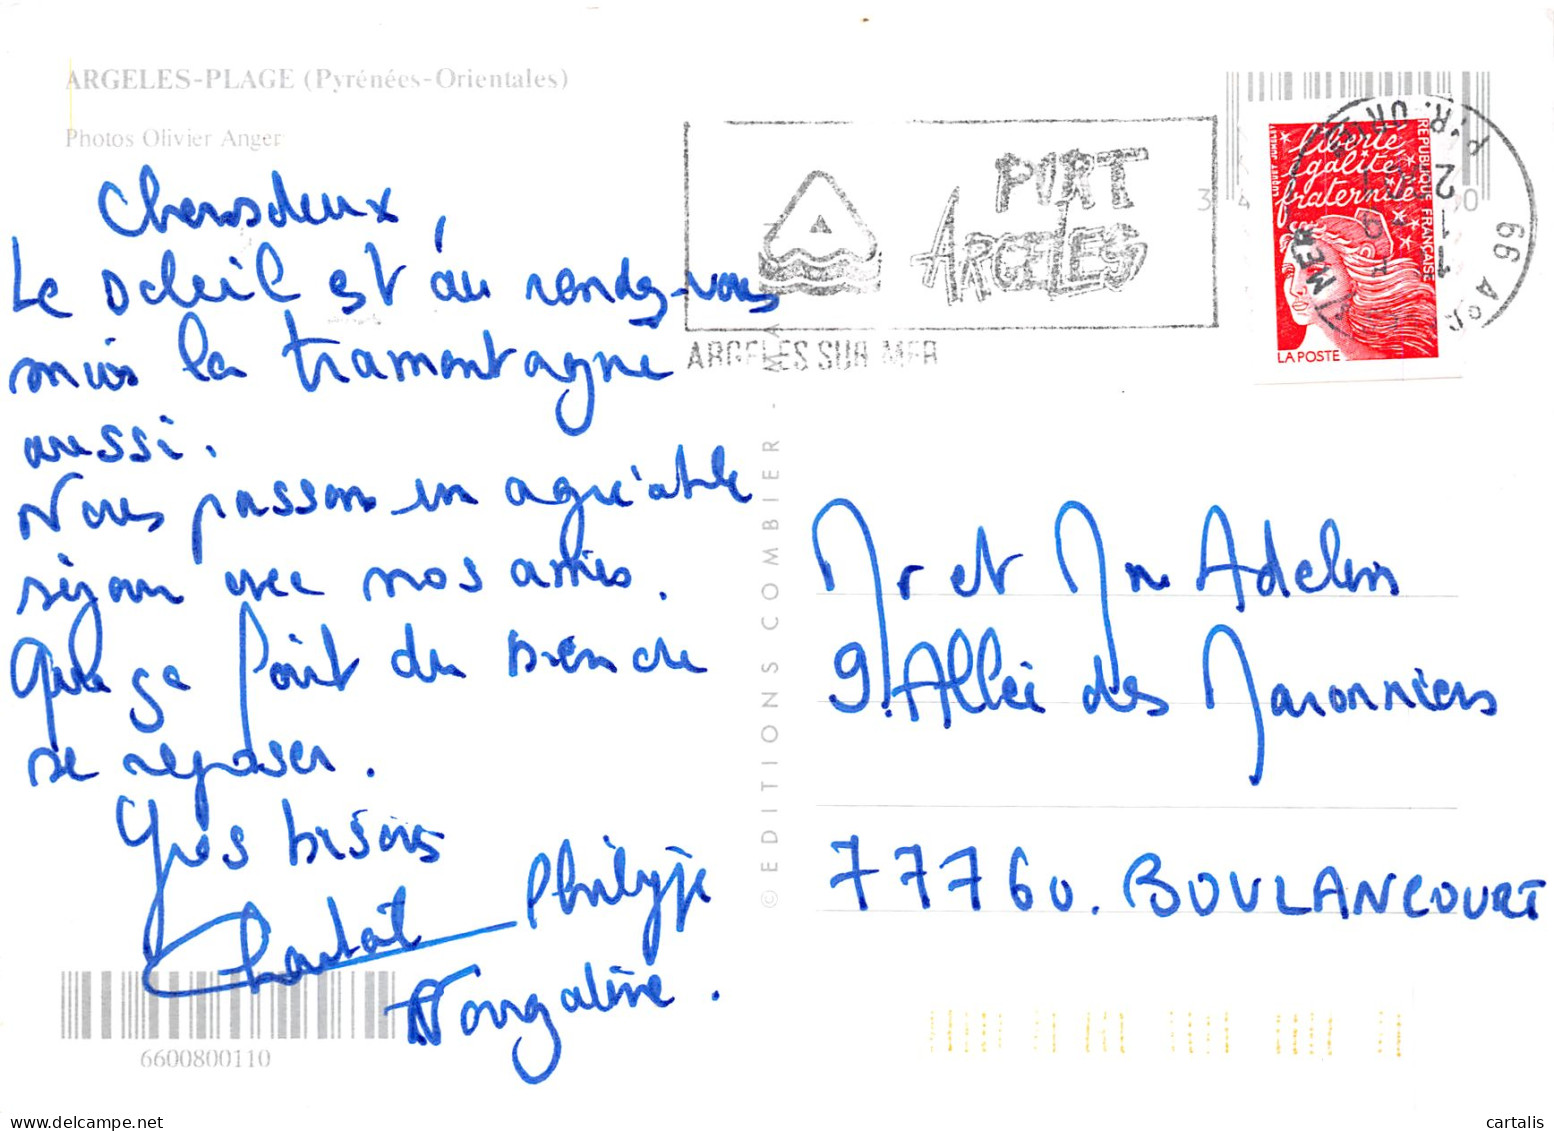 ARGELES-PLAGE (Pyrénées-Orientales)
Photos Olivier Anger
Le soleil est au rendez-vous
mais la tramontagne
aussi.
Nous passons un agréable
séjour avec nos amis.
Que ça fait du bien de
se reposer.
Gros bisous
Philippe
PORT
ARGELES
ARGELES SUR MER
liberté
égalité
fraternité
REPUBLIQUE FRANÇAISE
LA POSTE
66 A
© EDITIONS COMBIER - MA
Mr et Me Adelin
9. Allée des Maronniers
77760. BOULANCOURT
6600800110
cartalis